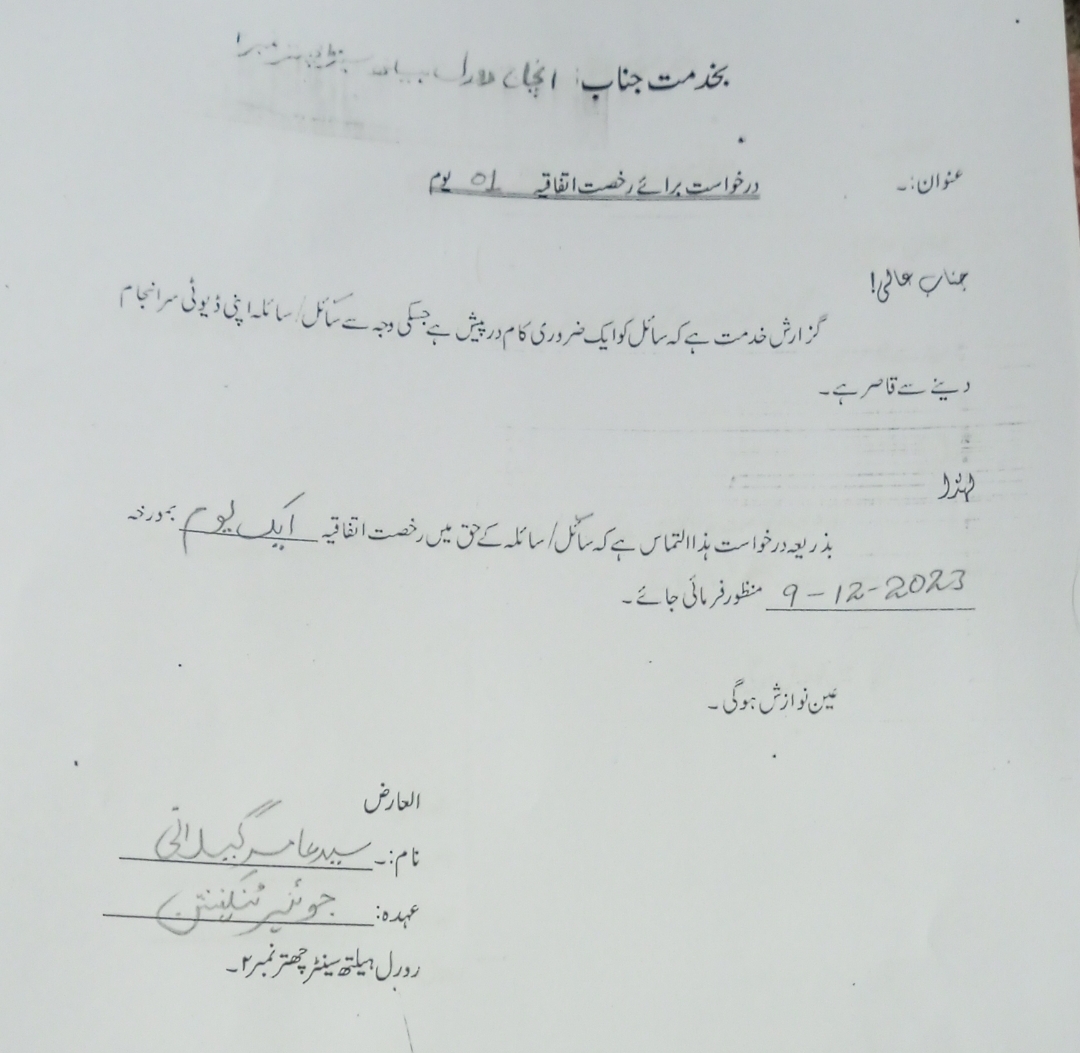 بخدمت جناب: انچارج رورل ہیلتھ سینٹر چھتر نمبر ۲
عنوان:۔ درخواست برائے رخصت اتفاقیہ 01 یوم
جناب عالی!
گزارش خدمت ہے کہ سائل کو ایک ضروری کام درپیش ہے جسکی وجہ سے سائل/سائلہ اپنی ڈیوٹی سرانجام
دینے سے قاصر ہے۔
لہٰذا
بذریعہ درخواست ہذا التماس ہے کہ سائل/سائلہ کے حق میں رخصت اتفاقیہ ایک یوم بمورخہ
9-12-2023 منظور فرمائی جائے۔
عین نوازش ہوگی۔
العارض
نام:۔ سید عامر گیلانی
عہدہ: جونئیر ٹیکنیشن
رورل ہیلتھ سینٹر چھتر نمبر ۲۔